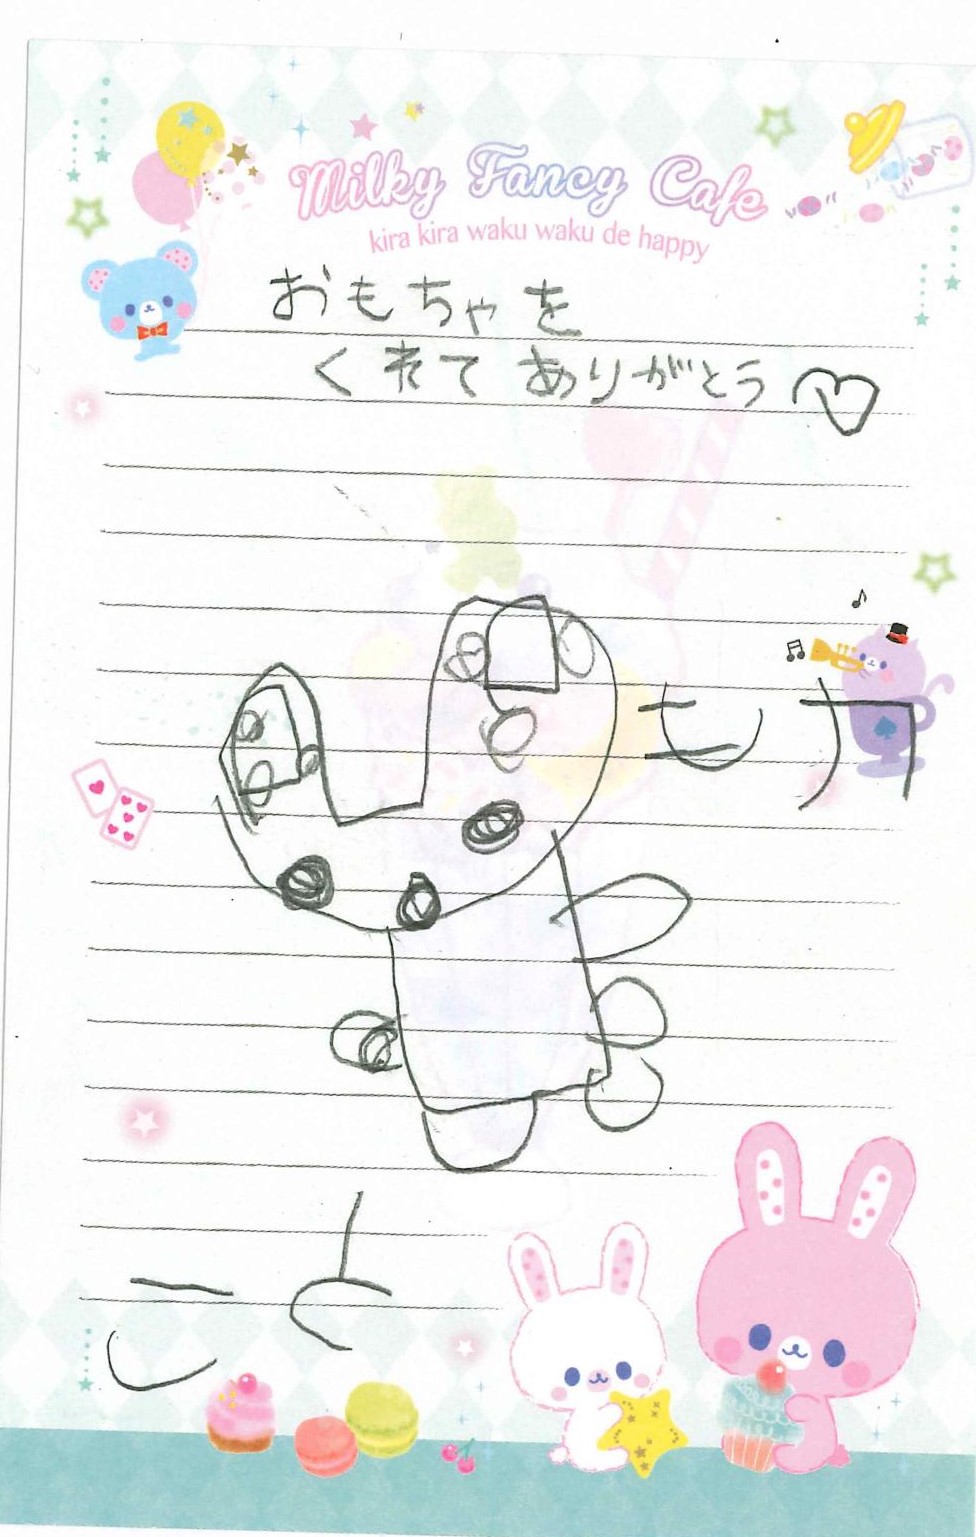 Milky Fancy Cafe
kira kira waku waku de happy
おもちゃを
くれて ありがとう♡
も
こと